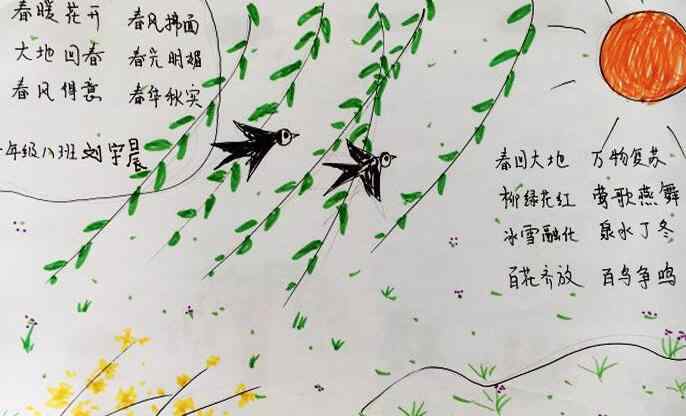 春暖花开 春风拂面
大地回春 春光明媚
春风得意 春华秋实
一年级八班刘宇晨
春回大地 万物复苏
柳绿花红 莺歌燕舞
冰雪融化 泉水丁冬
百花齐放 百鸟争鸣